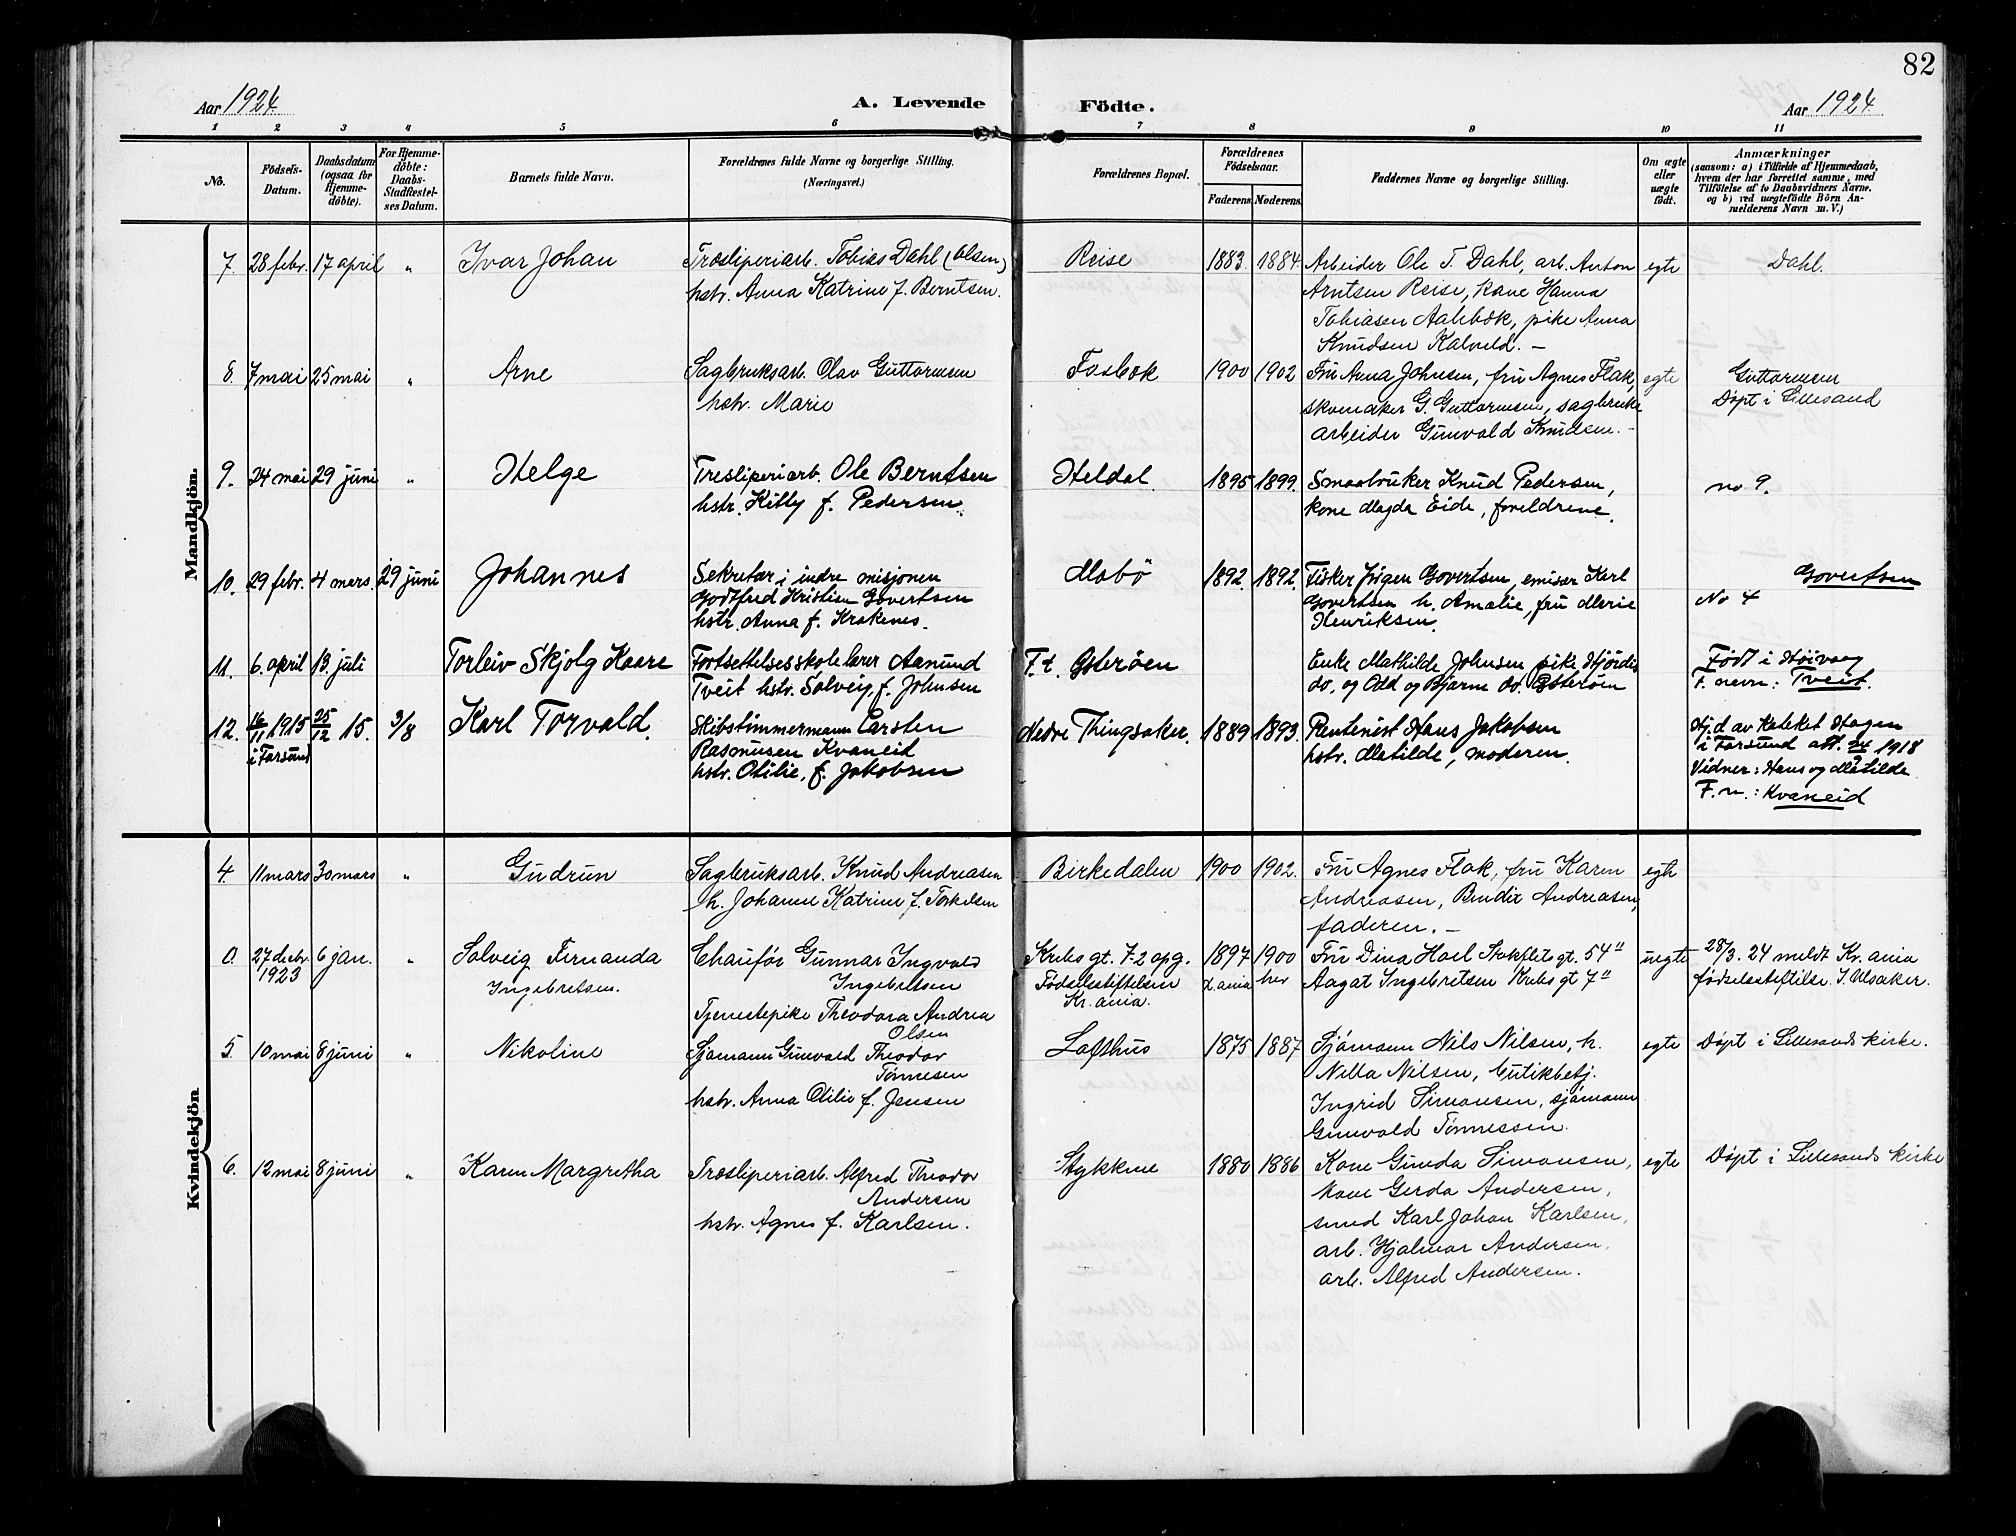 82
Aar 1924.
A. Levende Födte.
Aar 1924
1 2 3 4 5 6 7 8 9 10 11
No.
Födsels-
Datum.
Daabsdatum
(ogsaa for
Hjemme-
döbte).
For Hjemme-
döbte:
Daabs-
Stadfæstel-
ses Datum.
Barnets fulde Navn.
Forældrenes fulde Navne og borgerlige Stilling.
(Næringsvei.)
Forældrenes Bopæl.
Forældrenes
Födselsaar.
Faderens
Moderens
Faddernes Navne og borgerlige Stilling.
Om ægte
eller
uægte
födt.
Anmærkninger
(saasom: a) i Tilfælde af Hjemmedaab,
hvem der har forrettet samme, med
Tilföielse af to Daabsvidners Navne.
og b) ved uægtefödte Börn An-
melderens Navn m. V.)
Mandkjön.
7. 28 febr. 17 april " Ivar Johan
Træsliperiarb. Tobias Dahl (Olsen)
hstr. Anna Katrine f. Berntsen.
Reise
1883. 1884.
Arbeider Ole T. Dahl, arb. Anton
Arntsen Reise, kone Hanna
Tobiasen Aalebæk, pike Anna
Knudsen Kalveld. –
egte
Dahl.
8. 7 mai 25 mai " Arne
Sagbruksarb. Olav Guttormsen
hstr. Marie
Fosbæk
1900 1902
Fru Anna Johnsen, fru Agnes Flak,
skomaker G. Guttormsen, sagbruks
arbeider Gunvald Knudsen. –
egte
Guttormsen
Døpt i Lillesand
9. 24 mai 29 juni " Helge
Tresliperiarb. Ole Berntsen
hstr. Kitty f. Pedersen.
Heldal.
1895 1899.
Smaabruker Knud Pedersen,
kone Magda Eide, foreldrene.
no 9.
10. 29 febr. 4 mars. 29 juni Johannes
Sekretær i indre misjonen
Godtfred Kristian Govertsen
hstr. Anna f. Krakenes.
Mobö
1892. 1892.
Fisker Jörgen Govertsen, emisær Karl
Govertsen h. Amalie, fru Marie
Henriksen.
Govertsen
No 4
11. 6. april 13 juli Torleiv Skjolg Kaare
Fortsettelsesskolelærer Aanund
Tveit hstr. Solveig f. Johnsen
F. t. Østerøen
Enke Mathilde Johnsen pike Hjördis
do, og Odd og Bjarne do. Østerøen
Født i Höivaag
F. navn: Tveit.
12. 16/11 1915 25/12 15. 3/8 Karl Torvald.
i Farsund
Skibstimmermann Carsten
Rasmussen Kvaneid
hstr. Otilie, f. Jakobsen
Nedre Thingsaker.
1889 1893.
Rentenist Hans Jakobsen
hstr. Matilde, moderen.
Hj.d av Kateket Hagen
i Farsund att. 24/9 1918
Vidner: Hans og Matilde
F. n.: Kvaneid
Kvindekjön
4. 11 mars 30 mars " Gudrun
Sagbruksarb. Knud Andreasen
h. Johanne Katrine f. Torkelsen
Birkedalen
1900 1902.
Fru Agnes Flak, fru Karen
Andreasen, Bendix Andreasen,
faderen. –
egte
0. 27 decbr. 6 jan. " Solveig Fernanda
1923 Ingebretsen.
Chaufför Gunnar Ingvald
Ingebretsen
Tjenestepike Theodora Andrea
Olsen
Krebs gt. 7 2 opg.
Födselsstiftelsen
Kr. ania.
1897 1900
X.ania her
Fru Dina Hoel Stokflets gt. 54"
Aagat Ingebretsen Krebs gt 7"
uegte
28/3. 24 meldt Kr. ania
fødselsstiftelse.
5. 10 mai 8 juni " Nikoline
Sjømann Gunvald Theodor
Tønnesen
hstr. Anna Otilie f. Jensen
Lofthus
1875 1887
Sjømann Nils Nilsen, h.
Nilla Nilsen, butikbetj.
Ingrid Simonsen, sjømann
Gunvald Tønnessen.
egte
Døpt i Lillesands kirke.
6. 12 mai 8 juni " Karen Margretha
Træsliperiarb. Alfred Theodor
Andersen
hstr. Agnes f. Karlsen.
Stykkene
1880 1886
Kone Gunda Simonsen,
kone Gerda Andersen,
smed Karl Johan Karlsen,
arb. Hjalmar Andersen,
arb. Alfred Andersen.
egte
Døpt i Lillesands kirke